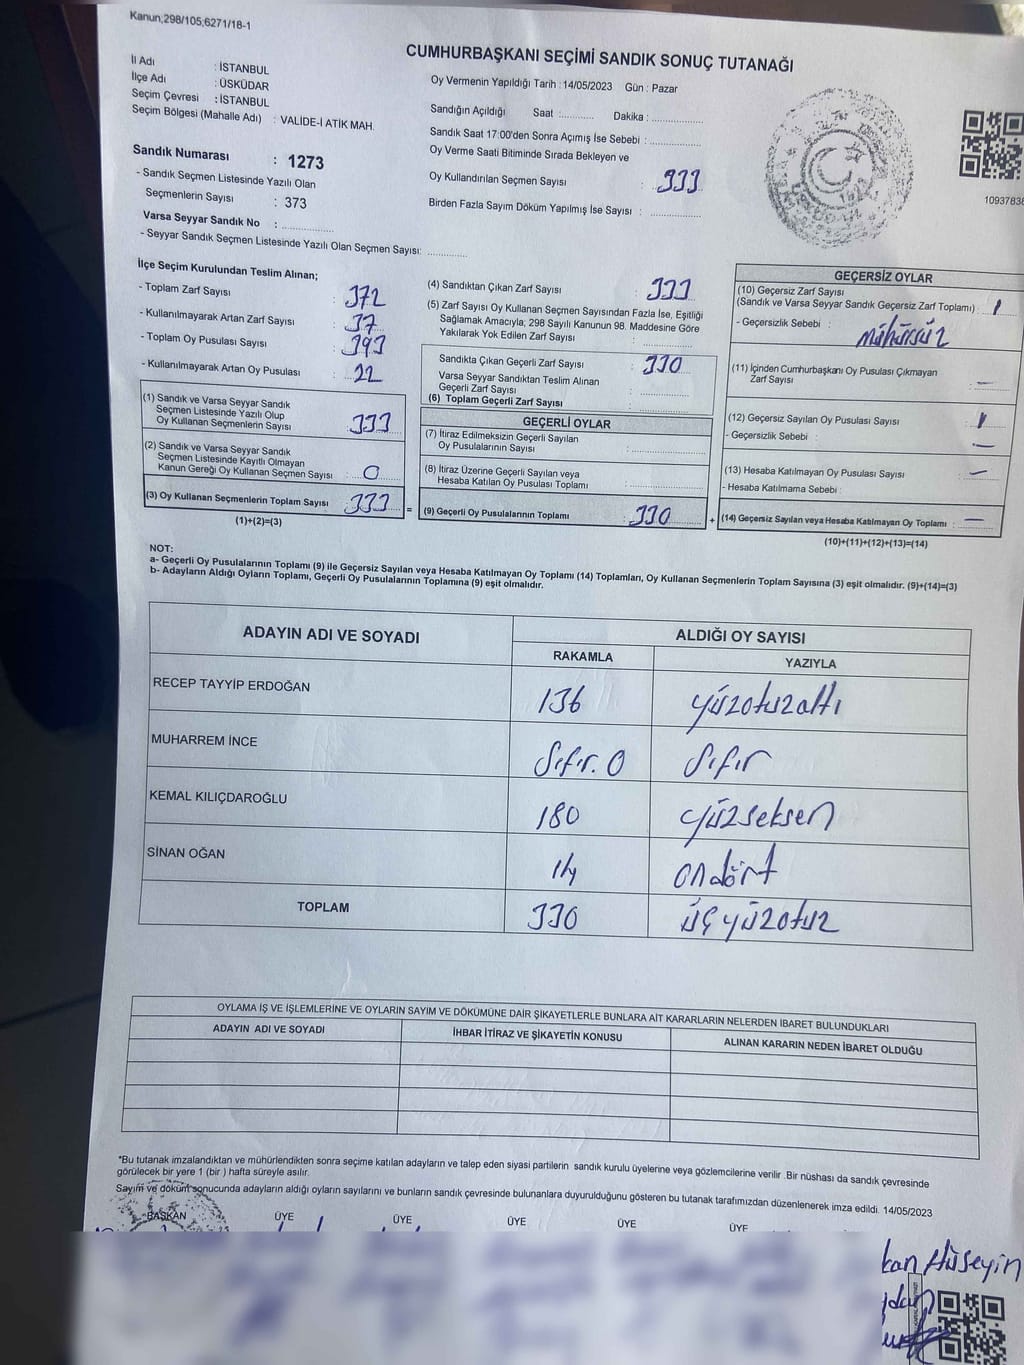 Kanun;298/105;6271/18-1
CUMHURBAŞKANI SEÇİMİ SANDIK SONUÇ TUTANAĞI
İl Adı : İSTANBUL
İlçe Adı : ÜSKÜDAR
Seçim Çevresi : İSTANBUL
Seçim Bölgesi (Mahalle Adı) : VALİDE-İ ATİK MAH.
Sandık Numarası : 1273
- Sandık Seçmen Listesinde Yazılı Olan
Seçmenlerin Sayısı : 373
Varsa Seyyar Sandık No : ................
- Seyyar Sandık Seçmen Listesinde Yazılı Olan Seçmen Sayısı: ............
Oy Vermenin Yapıldığı Tarih : 14/05/2023 Gün : Pazar
Sandığın Açıldığı Saat ............ Dakika : ................
Sandık Saat 17:00'den Sonra Açımış İse Sebebi : ................
Oy Verme Saati Bitiminde Sırada Bekleyen ve
Oy Kullandırılan Seçmen Sayısı : 333
Birden Fazla Sayım Döküm Yapılmış İse Sayısı : ................
1093783
İlçe Seçim Kurulundan Teslim Alınan;
- Toplam Zarf Sayısı : 372
- Kullanılmayarak Artan Zarf Sayısı : 37
- Toplam Oy Pusulası Sayısı : 393
- Kullanılmayarak Artan Oy Pusulası : 22
(1) Sandık ve Varsa Seyyar Sandık
Seçmen Listesinde Yazılı Olup
Oy Kullanan Seçmenlerin Sayısı : 333
(2) Sandık ve Varsa Seyyar Sandık
Seçmen Listesinde Kayıtlı Olmayan
Kanun Gereği Oy Kullanan Seçmen Sayısı : 0
(3) Oy Kullanan Seçmenlerin Toplam Sayısı : 333 =
(1)+(2)=(3)
(4) Sandıktan Çıkan Zarf Sayısı : 333
(5) Zarf Sayısı Oy Kullanan Seçmen Sayısından Fazla İse, Eşitliği
Sağlamak Amacıyla, 298 Sayılı Kanunun 98. Maddesine Göre
Yakılarak Yok Edilen Zarf Sayısı : ................
Sandıkta Çıkan Geçerli Zarf Sayısı : 330
Varsa Seyyar Sandıktan Teslim Alınan
Geçerli Zarf Sayısı : ................
(6) Toplam Geçerli Zarf Sayısı : ................
GEÇERLİ OYLAR
(7) İtiraz Edilmeksizin Geçerli Sayılan
Oy Pusulalarının Sayısı : ................
(8) İtiraz Üzerine Geçerli Sayılan veya
Hesaba Katılan Oy Pusulası Toplamı : ................
(9) Geçerli Oy Pusulalarının Toplamı : 330 +
GEÇERSİZ OYLAR
(10) Geçersiz Zarf Sayısı
(Sandık ve Varsa Seyyar Sandık Geçersiz Zarf Toplamı) : 1
- Geçersizlik Sebebi : mühürsüz
(11) İçinden Cumhurbaşkanı Oy Pusulası Çıkmayan
Zarf Sayısı : —
(12) Geçersiz Sayılan Oy Pusulası Sayısı : 1
- Geçersizlik Sebebi : —
(13) Hesaba Katılmayan Oy Pusulası Sayısı : —
- Hesaba Katılmama Sebebi :
(14) Geçersiz Sayılan veya Hesaba Katılmayan Oy Toplamı : —
(10)+(11)+(12)+(13)=(14)
NOT:
a- Geçerli Oy Pusulalarının Toplamı (9) ile Geçersiz Sayılan veya Hesaba Katılmayan Oy Toplamı (14) Toplamları, Oy Kullanan Seçmenlerin Toplam Sayısına (3) eşit olmalıdır. (9)+(14)=(3)
b- Adayların Aldığı Oyların Toplamı, Geçerli Oy Pusulalarının Toplamına (9) eşit olmalıdır.
ADAYIN ADI VE SOYADI ALDIĞI OY SAYISI
RAKAMLA YAZIYLA
RECEP TAYYİP ERDOĞAN 136 yüzotuzaltı
MUHARREM İNCE Sıfır. 0 Sıfır
KEMAL KILIÇDAROĞLU 180 yüzseksen
SİNAN OĞAN 14 ondört
TOPLAM 330 üçyüzotuz
OYLAMA İŞ VE İŞLEMLERİNE VE OYLARIN SAYIM VE DÖKÜMÜNE DAİR ŞİKAYETLERLE BUNLARA AİT KARARLARIN NELERDEN İBARET BULUNDUKLARI
ADAYIN ADI VE SOYADI İHBAR İTİRAZ VE ŞİKAYETİN KONUSU ALINAN KARARIN NEDEN İBARET OLDUĞU
*Bu tutanak imzalandıktan ve mühürlendikten sonra seçime katılan adayların ve talep eden siyasi partilerin sandık kurulu üyelerine veya gözlemcilerine verilir .Bir nüshası da sandık çevresinde
görülecek bir yere 1 (bir ) hafta süreyle asılır.
Sayım ve döküm sonucunda adayların aldığı oyların sayılarını ve bunların sandık çevresinde bulunanlara duyurulduğunu gösteren bu tutanak tarafımızdan düzenlenerek imza edildi. 14/05/2023
BAŞKAN ÜYE ÜYE ÜYE ÜYE ÜYE
kan Hüseyin